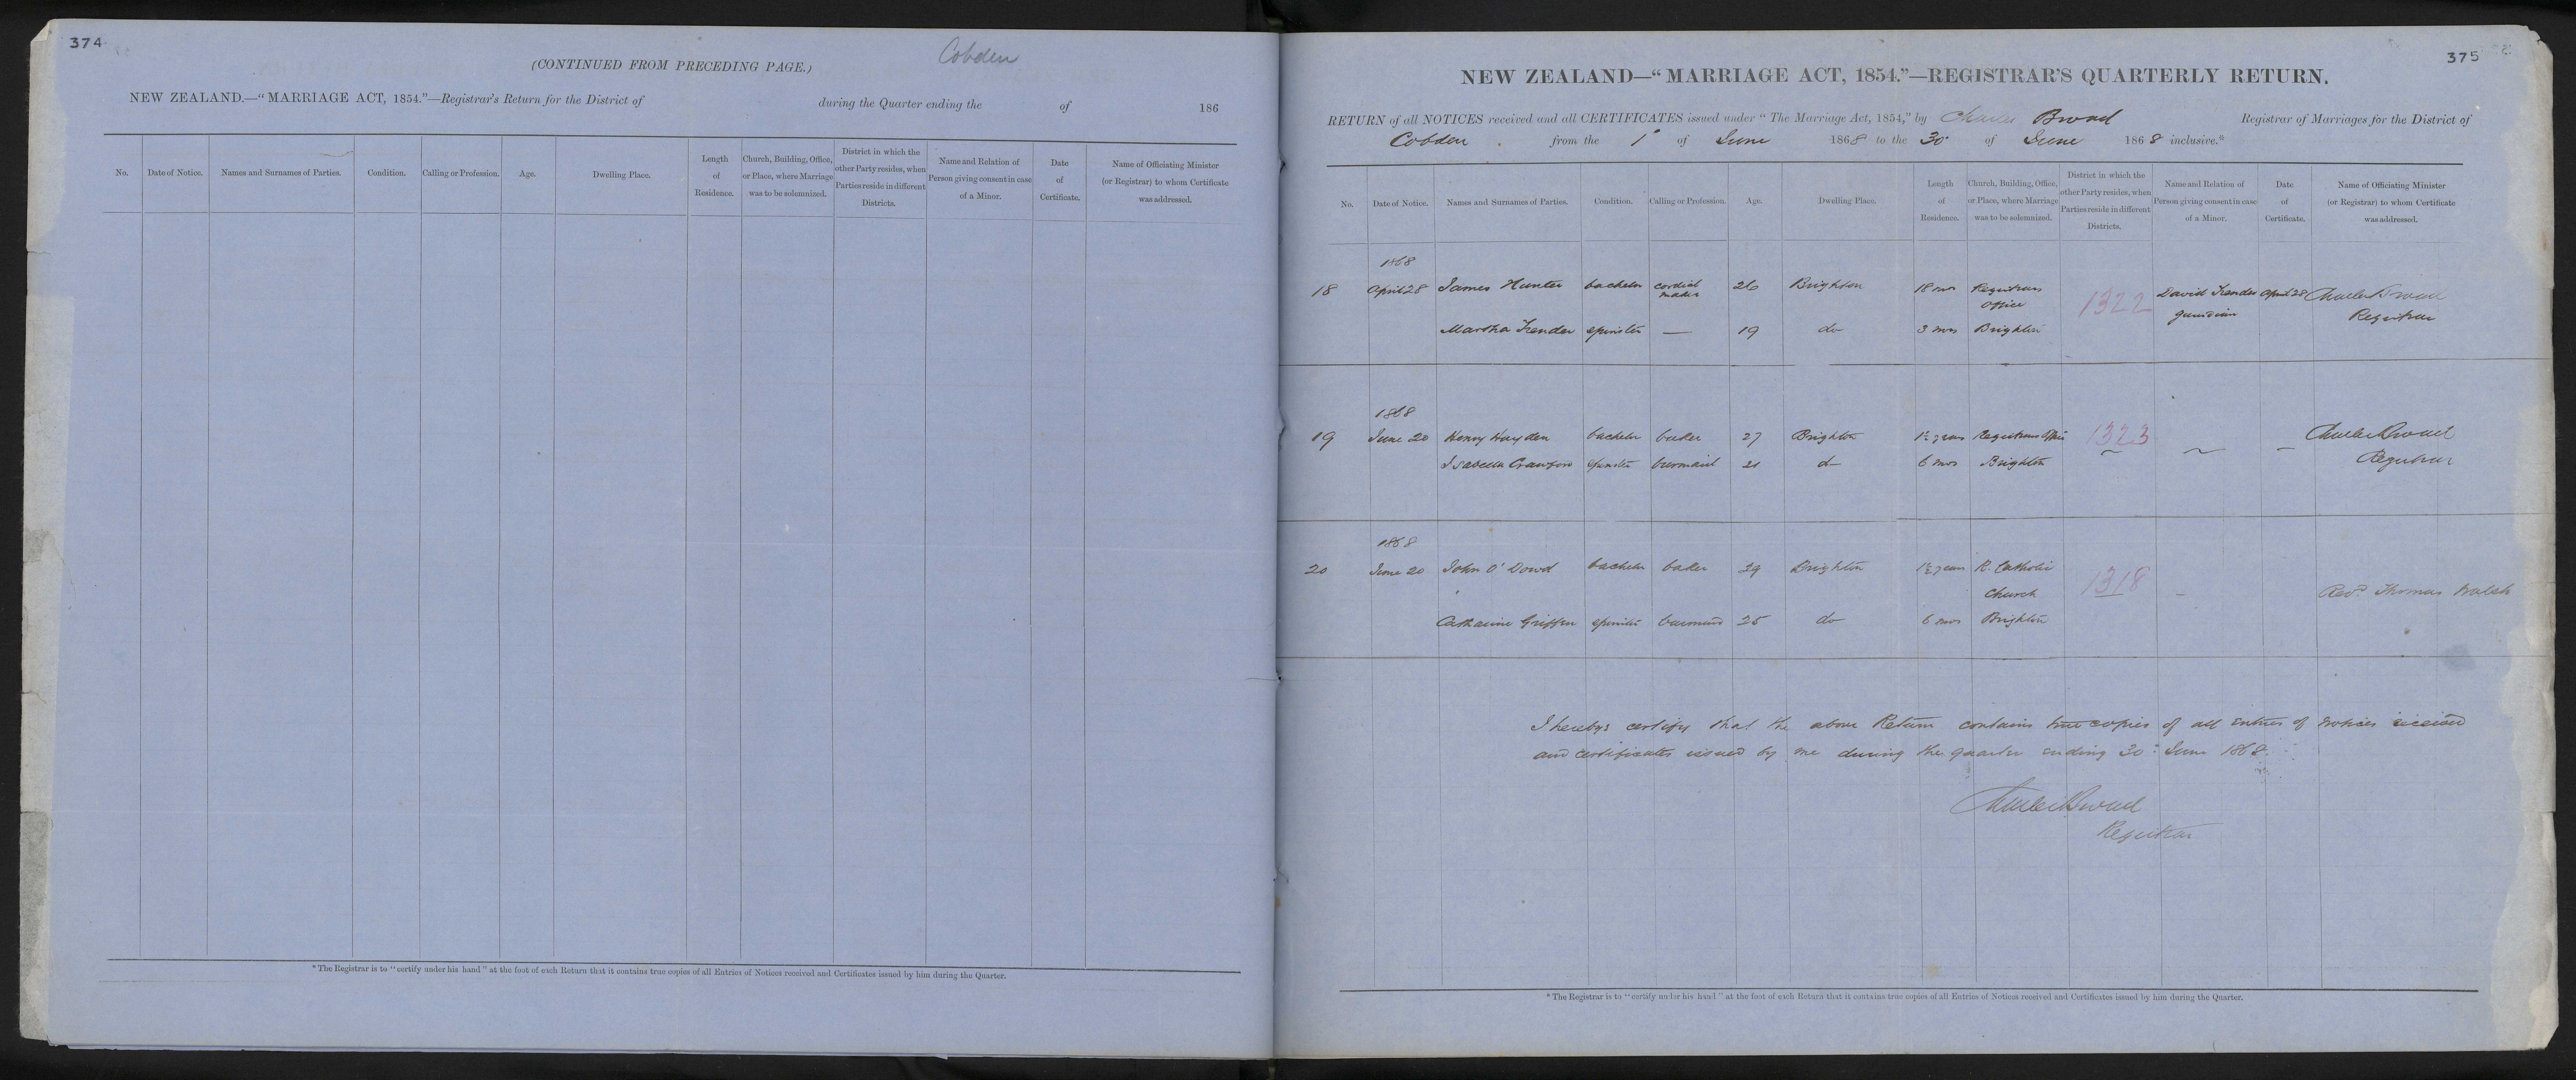 374
Cobden
(CONTINUED FROM PRECEDING PAGE.)
NEW ZEALAND.—"MARRIAGE ACT, 1854."—Registrar's Return for the District of during the Quarter ending the of 186
No. Date of Notice. Names and Surnames of Parties. Condition. Calling or Profession. Age. Dwelling Place. Length of Residence. Church, Building, Office, or Place, where Marriage was to be solemnized. District in which the other Party resides, when Parties reside in different Districts. Name and Relation of Person giving consent in case of a Minor. Date of Certificate. Name of Officiating Minister (or Registrar) to whom Certificate was addressed.
* The Registrar is to "certify under his hand" at the foot of each Return that it contains true copies of all Entries of Notices received and Certificates issued by him during the Quarter.
375
NEW ZEALAND—"MARRIAGE ACT, 1854."—REGISTRAR'S QUARTERLY RETURN.
RETURN of all NOTICES received and all CERTIFICATES issued under "The Marriage Act, 1854," by Charles Broad Registrar of Marriages for the District of
Cobden from the 1st of June 1868 to the 30 of June 1868 inclusive.*
No. Date of Notice. Names and Surnames of Parties. Condition. Calling or Profession. Age. Dwelling Place. Length of Residence. Church, Building, Office, or Place, where Marriage was to be solemnized. District in which the other Party resides, when Parties reside in different Districts. Name and Relation of Person giving consent in case of a Minor. Date of Certificate. Name of Officiating Minister (or Registrar) to whom Certificate was addressed.
1868
18 April 28 James Hunter bachelor cordial maker 26 Brighton 18 mos Registrars Office 1322 David guardian April 28 Charles Broad Registrar
Martha spinster — 19 do 3 mos Brighton
1868
19 June 20 Henry Hayden bachelor baker 27 Brighton 1½ years Registrars Office 1323 ~ – Charles Broad
Isabella Crawford spinster barmaid 21 do 6 mos Brighton Registrar
1868
20 June 20 John O'Dowd bachelor baker 29 Brighton 1½ years R. Catholic
Church 1318 – Revd Thomas Walsh
Catharine Griffen spinster barmaid 25 do 6 mos Brighton
I hereby certify that the above Return contains true copies of all entries of notices received
and certificates issued by me during the quarter ending 30th June 1868.
Charles Broad
Registrar
* The Registrar is to "certify under his hand" at the foot of each Return that it contains true copies of all Entries of Notices received and Certificates issued by him during the Quarter.